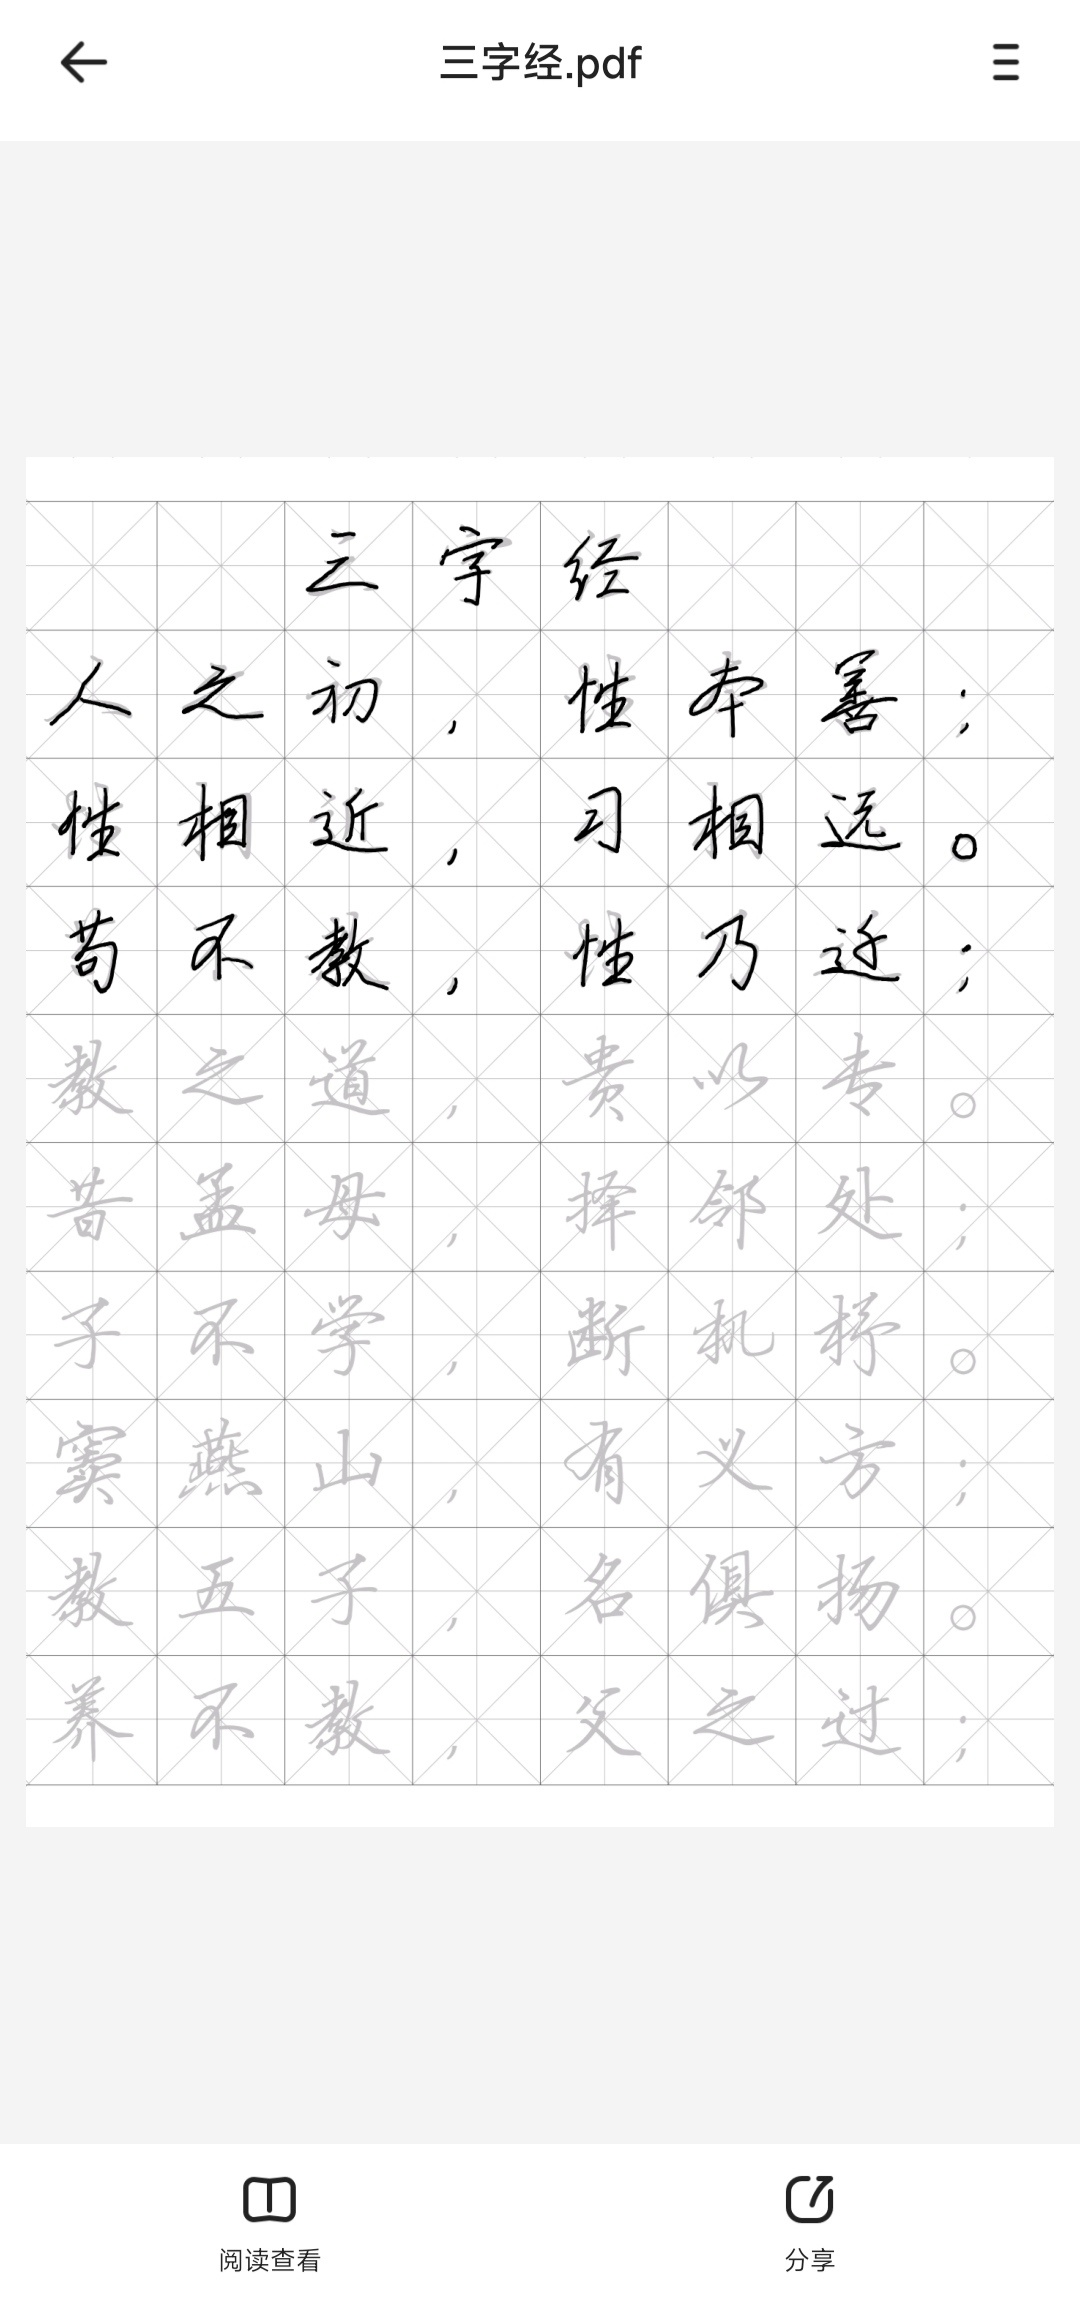 三字经.pdf
三字经
人之初，性本善；
性相近，习相远。
苟不教，性乃迁；
教之道，贵以专。
昔孟母，择邻处；
子不学，断机杼。
窦燕山，有义方；
教五子，名俱扬。
养不教，父之过；
阅读查看 分享